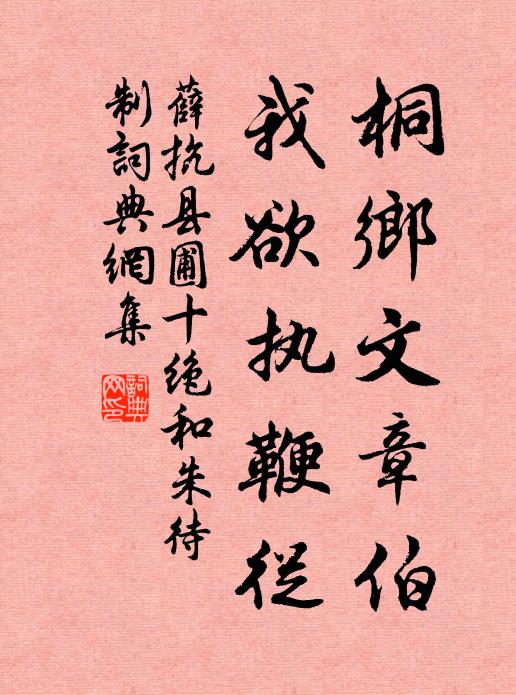 桐鄉文章伯
我欲执鞭從
薛抗县圃十绝和朱待
制詞典網集
詞典
网印